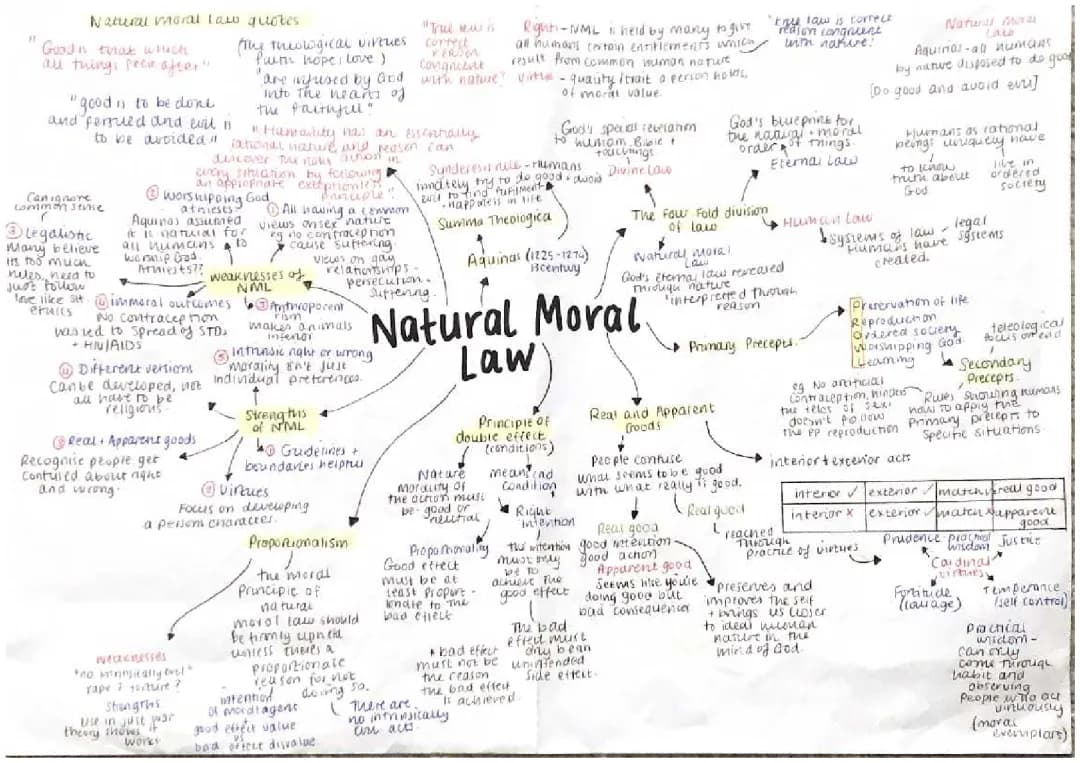 Natural moral law quotes
"Good is that which
all things seek after"
(the theological virtues
faith hope + love)
"are infused by God
into the hearts of
the faithful"
"good is to be done
and persued and evil is
to be avoided"
"True law is
correct
reason
congruent
with nature"
Rights - NML is held by many to give
all humans certain entitlements which
result from common human nature
virtue - quality/trait a person holds,
of moral value.
"true law is correct
reason congruent
with nature"
Natural Moral
Law
Aquinas - all humans
by nature disposed to do good
[Do good and avoid evil]
"Humanity has an essentially
rational nature and reason can
discover the right action in
every situation by following
an appropriate exceptionless
principle"
Synderesis rule - Humans
innately try to do good + avoid
evil, to find fulfilment +
happiness in life
God's special revelation
to human, Bible +
teachings
Divine Law
God's blueprint for
the natural + moral
order of things.
Eternal Law
Humans as rational
beings uniquely have
to know
truth about
God
live in
ordered
society
Summa Theologica
Aquinas (1225-1274)
13century
The Four Fold division
of law
Natural Moral
Law
God's eternal law revealed
through nature
interpreted through
reason
Human Law
Systems of law - legal
Humans have systems
created.
weaknesses of
NML
① All having a common
views on sex nature
eg no contraception
cause suffering.
views on gay
relationships -
persecution +
suffering.
② worshipping God
atheists?
Aquinas assumed
it is natural for
all humans to
worship God.
Athiests??
Can ignore
common sense
③ Legalistic
Many believe
its too much
rules, need to
just follow
love like sit.
ethics
④ immoral outcomes
No contraception
has led to spread of STDs
+ HIV/AIDS
Anthropocen
trism
makes animals
inferior
Natural Moral
Law
Strengths
of NML
Intrinsic right or wrong
morality isn't just
individual preferences.
④ Different versions
Can be developed, not
all have to be
religious.
③ Real + Apparent goods
Recognise people get
confused about right
and wrong.
② Virtues
Focus on developing
a person character.
① Guidelines +
boundaries helpful
Primary Precepts
Preservation of life
Reproduction
Ordered society
Worshipping God
Learning
teleological
focus on end
Secondary
Precepts.
Rules showing humans
how to apply the
Primary precepts to
specific situations.
eg. No artificial
contraception, hinders
the telos of sex.
doesn't follow
the PP reproduction
Principle of
double effect
(conditions)
Nature
morality of
the action must
be good or
neutral
means end
condition
Proportionality
Good effect
must be at
least propor-
tionate to the
bad effect
Right
intention
The intention
must only
be to
achieve the
good effect
The bad
effect must
only be an
unintended
side effect.
bad effect
must not be
the reason
the bad effect
is achieved.
Real and Apparent
Goods
People confuse
what seems to be good
with what really is good.
Real good
good intention
good action
Apparent good
Seems like you're
doing good but
bad consequence
Real good
reached
through
practice of virtues
Preserves and
improves the self
+ brings us closer
to ideal human
nature in the
mind of God.
interior + exterior acts
interior ✓ exterior ✓ match ✓ real good
interior x exterior ✓ match x apparent
good
Prudence - practical
wisdom
Justice
Cardinal
virtues
Fortitude
(courage)
Temperance
(self control)
Practical
wisdom -
can only
come through
habit and
observing
people who act
virtuously
(moral
exemplars)
Proportionalism
the moral
Principle of
natural
moral law should
be firmly upheld
unless there's a
proportionate
reason for not
doing so.
There are
no intrinsically
evil acts.
intention
of moral agents
good effect value
vs
bad effect disvalue
weaknesses
"no intrinsically evil"
rape? torture?
Strengths
Use in just war
theory shows it
works